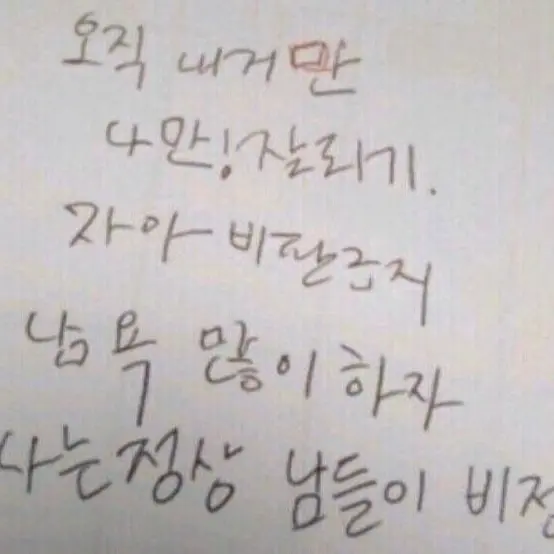 오직 내거만
나만! 잘라기.
자아 비판금지
남 욕 많이 하자
나는정상 남들이 비정